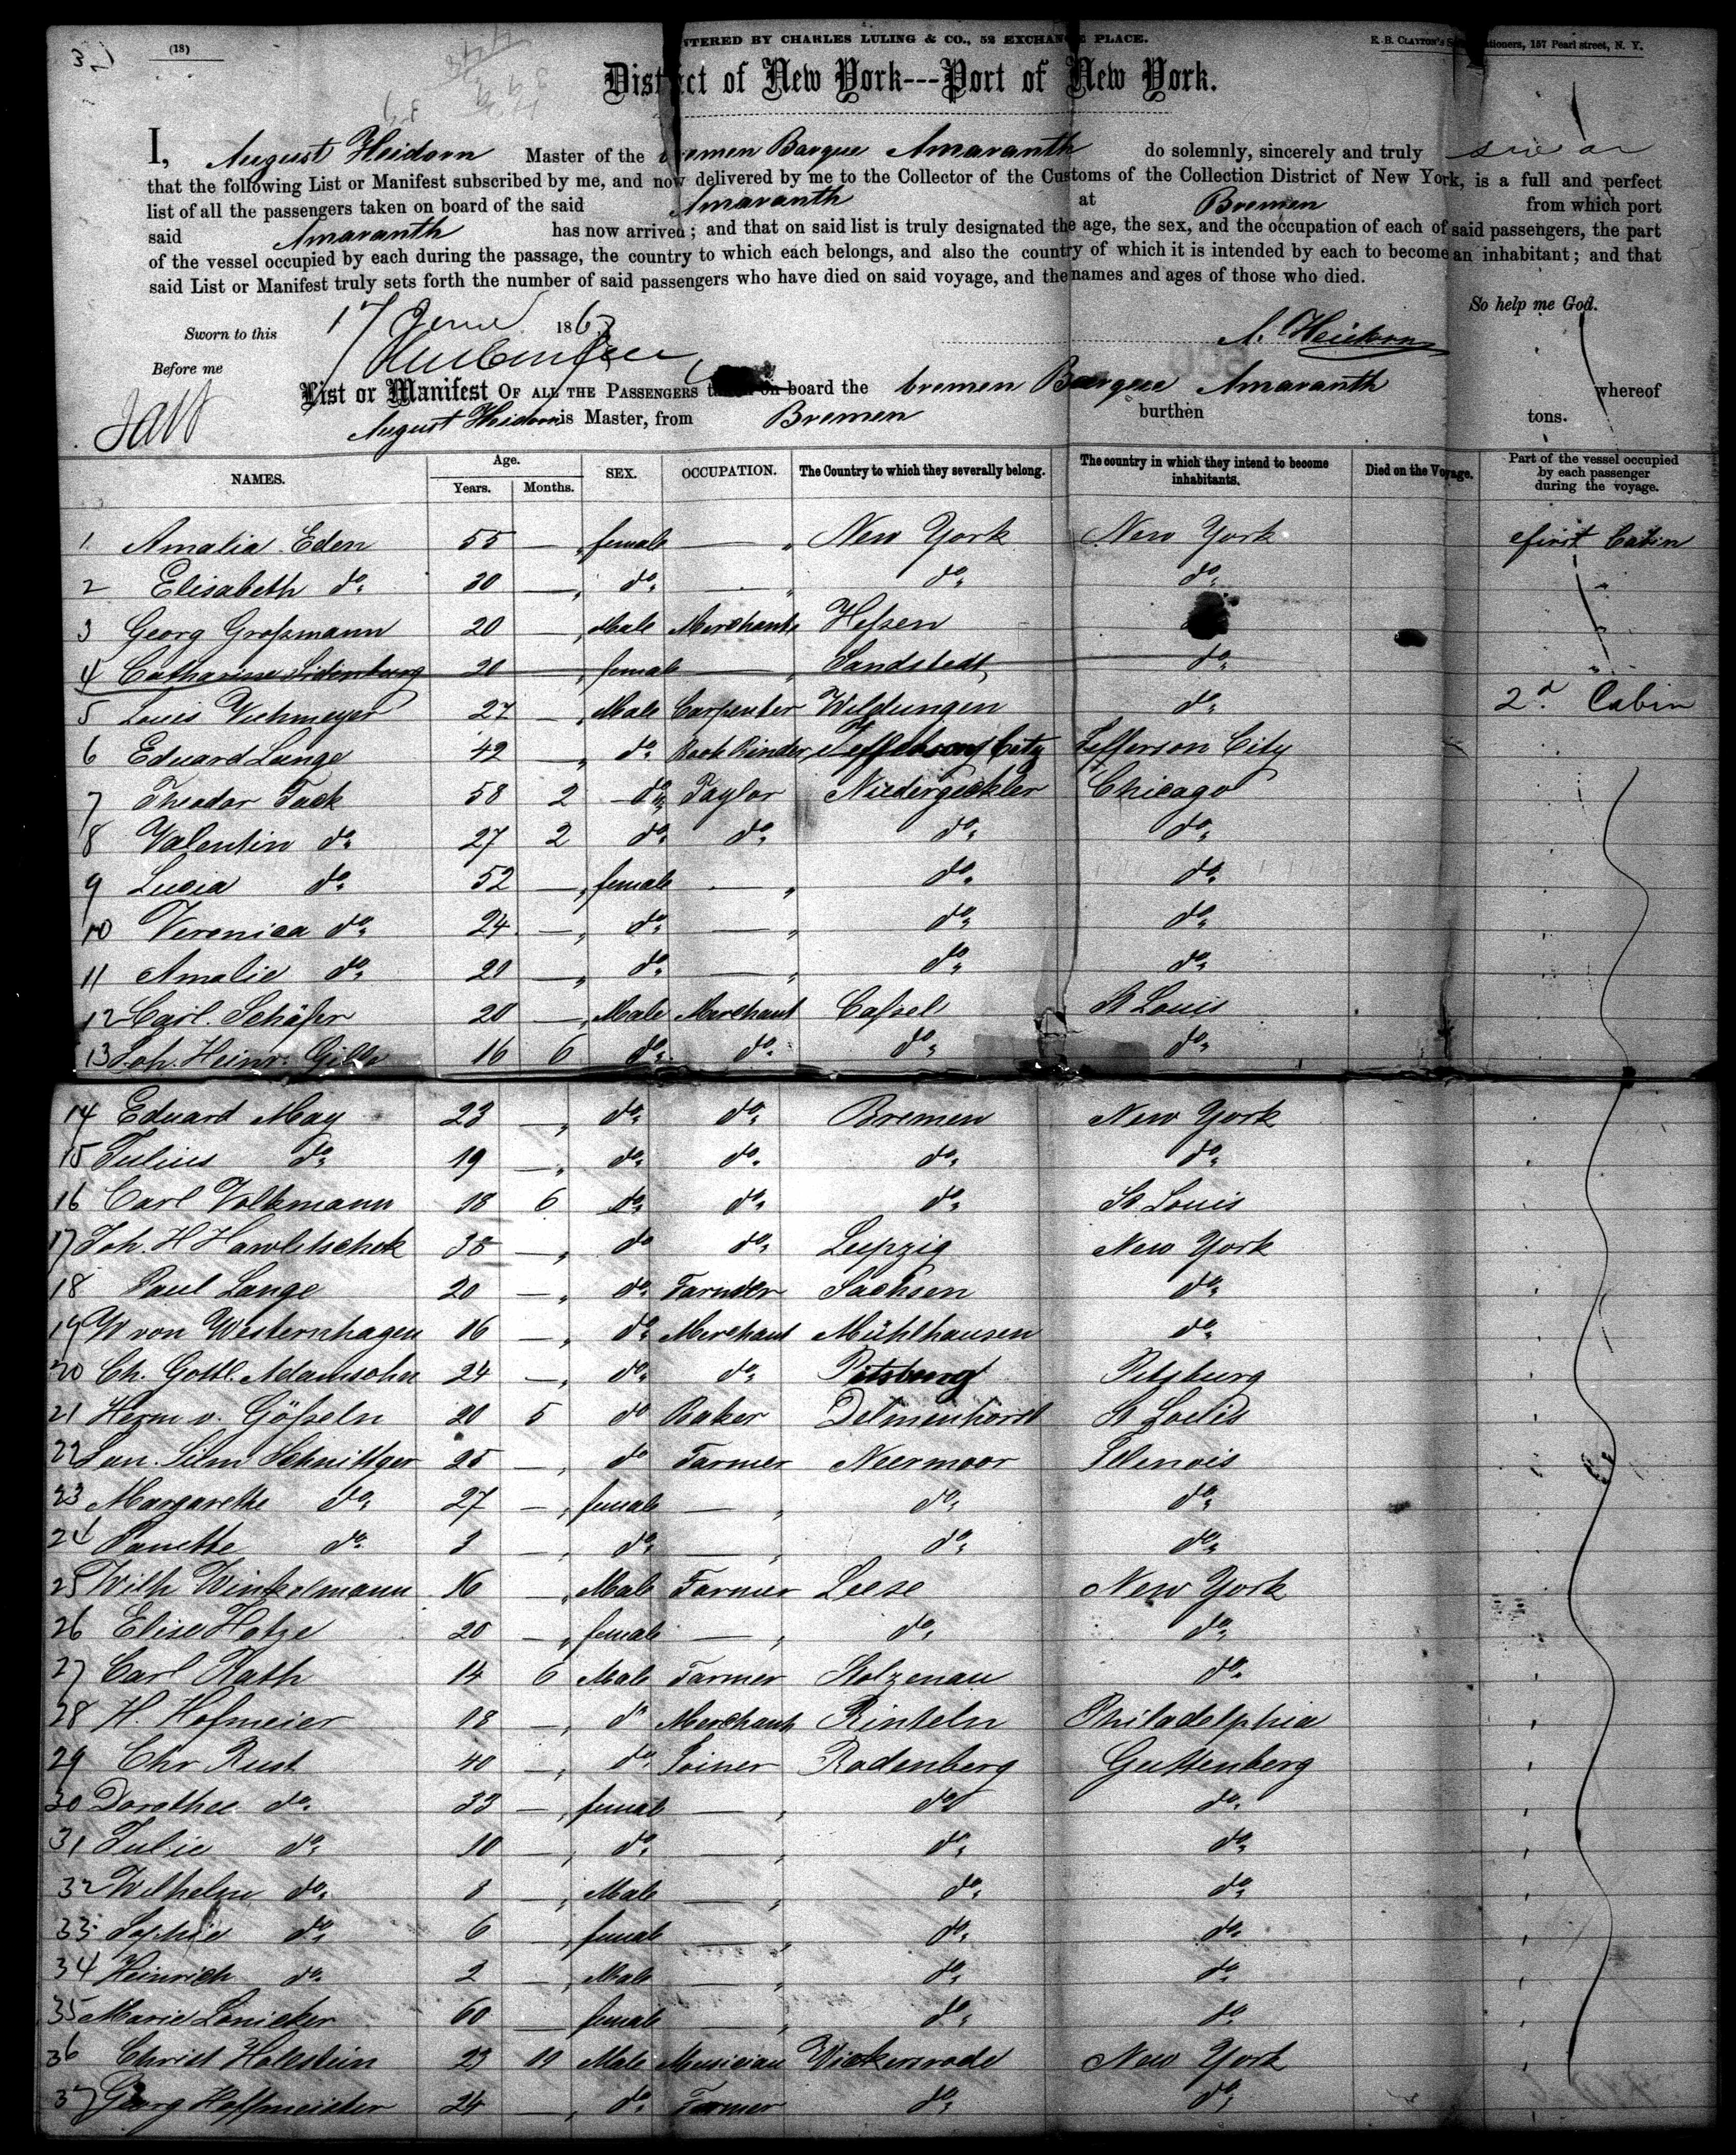 (18)
TERED BY CHARLES LULING & CO., 52 EXCHANGE PLACE.
E. B. CLAYTON'S Stationers, 157 Pearl street, N. Y.
District of New York---Port of New York.
I, August Heidorn Master of the Bremen Barque Amaranth do solemnly, sincerely and truly swear
that the following List or Manifest subscribed by me, and now delivered by me to the Collector of the Customs of the Collection District of New York, is a full and perfect
list of all the passengers taken on board of the said Amaranth at Bremen from which port
said Amaranth has now arrived; and that on said list is truly designated the age, the sex, and the occupation of each of said passengers, the part
of the vessel occupied by each during the passage, the country to which each belongs, and also the country of which it is intended by each to become an inhabitant; and that
said List or Manifest truly sets forth the number of said passengers who have died on said voyage, and the names and ages of those who died.
So help me God.
Sworn to this 17 June 1863
A. Heidorn
Before me
List or Manifest OF ALL THE PASSENGERS taken on board the bremen Barque Amaranth whereof
August Heidorn is Master, from Bremen burthen tons.
NAMES. Age. Years. Months. SEX. OCCUPATION. The Country to which they severally belong. The country in which they intend to become inhabitants. Died on the Voyage. Part of the vessel occupied by each passenger during the voyage.
1 Amalia Eden 55 — " female — " New York New York first Cabin
2 Elisabeth do 30 — " do — " do do "
3 Georg Großmann 20 — " Male Merchant Heßen "
4 Catharine 20 — " female — " Sandstedt do "
5 Louis Viehmeyer 27 — " Male Carpenter Wildungen do 2d Cabin
6 Eduard Lange 42 — " do Bookbinder Jefferson City Jefferson City
7 Theodor Tack 58 2 do Taylor Niedergeckler Chicago
8 Valentin do 27 2 do do do do
9 Lucia do 52 — " female — " do do
10 Veronica do 24 — " do — " do do
11 Amalie do 20 — " do — " do do
12 Carl Schäfer 20 — " Male Merchant Caßel St Louis
13 Joh. Heinr. 16 6 do do do do
14 Eduard May 23 — " do do Bremen New York
15 Julius do 19 — " do do do do
16 Carl Volkmann 18 6 do do do St. Louis
17 Joh. H Hawlitschek 38 — " do do Leipzig New York
18 Paul Lange 20 — " do Farmer Sachsen do
19 W von Westernhagen 16 — " do Merchant Mühlhausen do
20 Ch. Gottl. Adamsohn 24 — " do do Pitsburg Pitsburg
21 Herm v. Gößeln 20 5 do Baker Delmenhorst St Louis
22 Schnittger 25 — " do Farmer Neermoor Illenois
23 Margarethe do 27 — " female — " do do
24 do 3 — " do — " do do
25 Wilh Winkelmann 16 — " Male Farmer Leese New York
26 Elise Hotze 20 — " female — " do do
27 Carl Rath 14 6 Male Farmer Stolzenau do
28 H. Hofmeier 18 — " do Merchant Rinteln Philadelphia
29 Chr Rust 40 — " do Joiner Rodenberg Guttenberg
30 Dorothee do 33 — " female — " do do
31 Julie do 10 — " do — " do do
32 Wilhelm do 8 — " Male — " do do
33 Sophie do 6 — " female — " do do
34 Heinrich do 2 — " Male — " do do
35 Marie Lönicker 60 — female — " do do
36 Christ Holzstein 23 Male Musician Wickersrode New York
37 Georg Hoffmeister 24 — " do Farmer do do